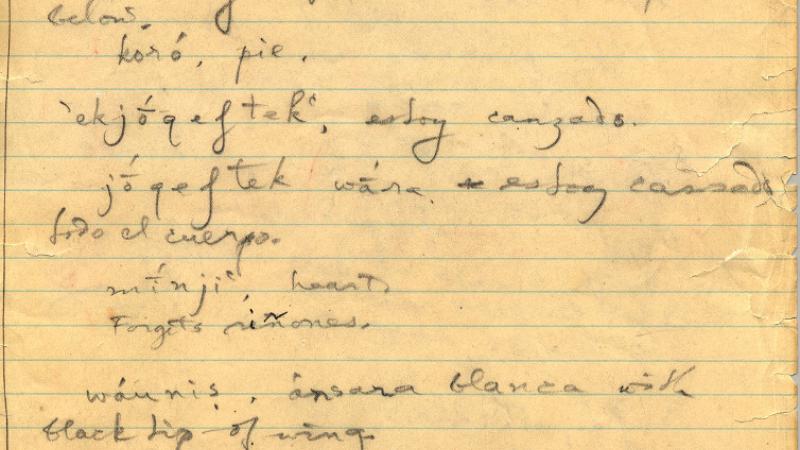 below.
koró, pie.
'ekjṓqeftekʽ, estoy canzado.
jṓqeftek wára. estoy cansado
todo el cuerpo.
mī́njiʽ, heart.
Forgets riñones.
wáuniṣ, ánsara blanca with
black tip of wing